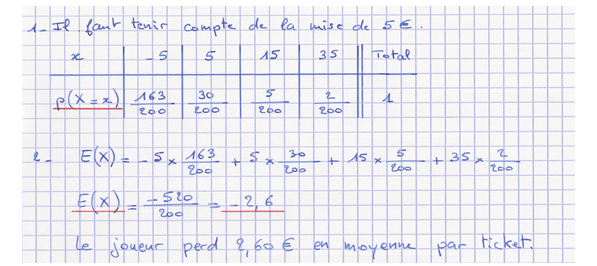 1_ Il faut tenir compte de la mise de 5 €.
x | -5 | 5 | 15 | 35 | Total
p(X = x) | 163/200 | 30/200 | 5/200 | 2/200 | 1
2_ E(X) = -5 × 163/200 + 5 × 30/200 + 15 × 5/200 + 35 × 2/200
E(X) = -520/200 = -2,6
le joueur perd 2,60 € en moyenne par ticket.